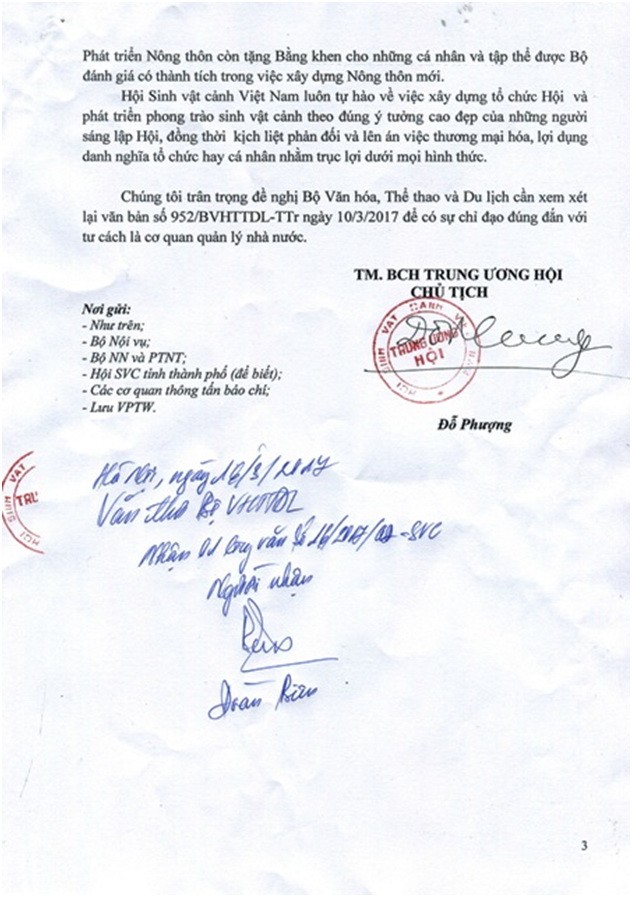 Phát triển Nông thôn còn tặng Bằng khen cho những cá nhân và tập thể được Bộ
đánh giá có thành tích trong việc xây dựng Nông thôn mới.
Hội Sinh vật cảnh Việt Nam luôn tự hào về việc xây dựng tổ chức Hội và
phát triển phong trào sinh vật cảnh theo đúng ý tưởng cao đẹp của những người
sáng lập Hội, đồng thời kịch liệt phản đối và lên án việc thương mại hóa, lợi dụng
danh nghĩa tổ chức hay cá nhân nhằm trục lợi dưới mọi hình thức.
Chúng tôi trân trọng đề nghị Bộ Văn hóa, Thể thao và Du lịch cần xem xét
lại văn bản số 952/BVHTTDL-TTr ngày 10/3/2017 để có sự chỉ đạo đúng đắn với
tư cách là cơ quan quản lý nhà nước.
TM. BCH TRUNG ƯƠNG HỘI
CHỦ TỊCH
TRUNG ƯƠNG
HỘI
Đỗ Phượng
Nơi gửi:
- Như trên;
- Bộ Nội vụ;
- Bộ NN và PTNT;
- Hội SVC tỉnh thành phố (để biết);
- Các cơ quan thông tấn báo chí;
- Lưu VPTW.
Hà Nội, ngày 16/3/2017
Văn thư Bộ VHTTDL
Nhận 01 công văn số
Người nhận
Đoàn
3